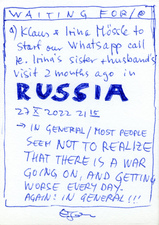 WAITING FOR/@
a) Klaus & Irina Mössle to
start our Whatsapp call
re. Irina's sister & husband's
visit 2 months ago in
RUSSIA
27 X 2022 21 15
→ IN GENERAL / MOST PEOPLE
SEEM NOT TO REALIZE
THAT THERE IS A WAR
GOING ON, AND GETTING
WORSE EVERY DAY.
AGAIN: IN GENERAL!!!